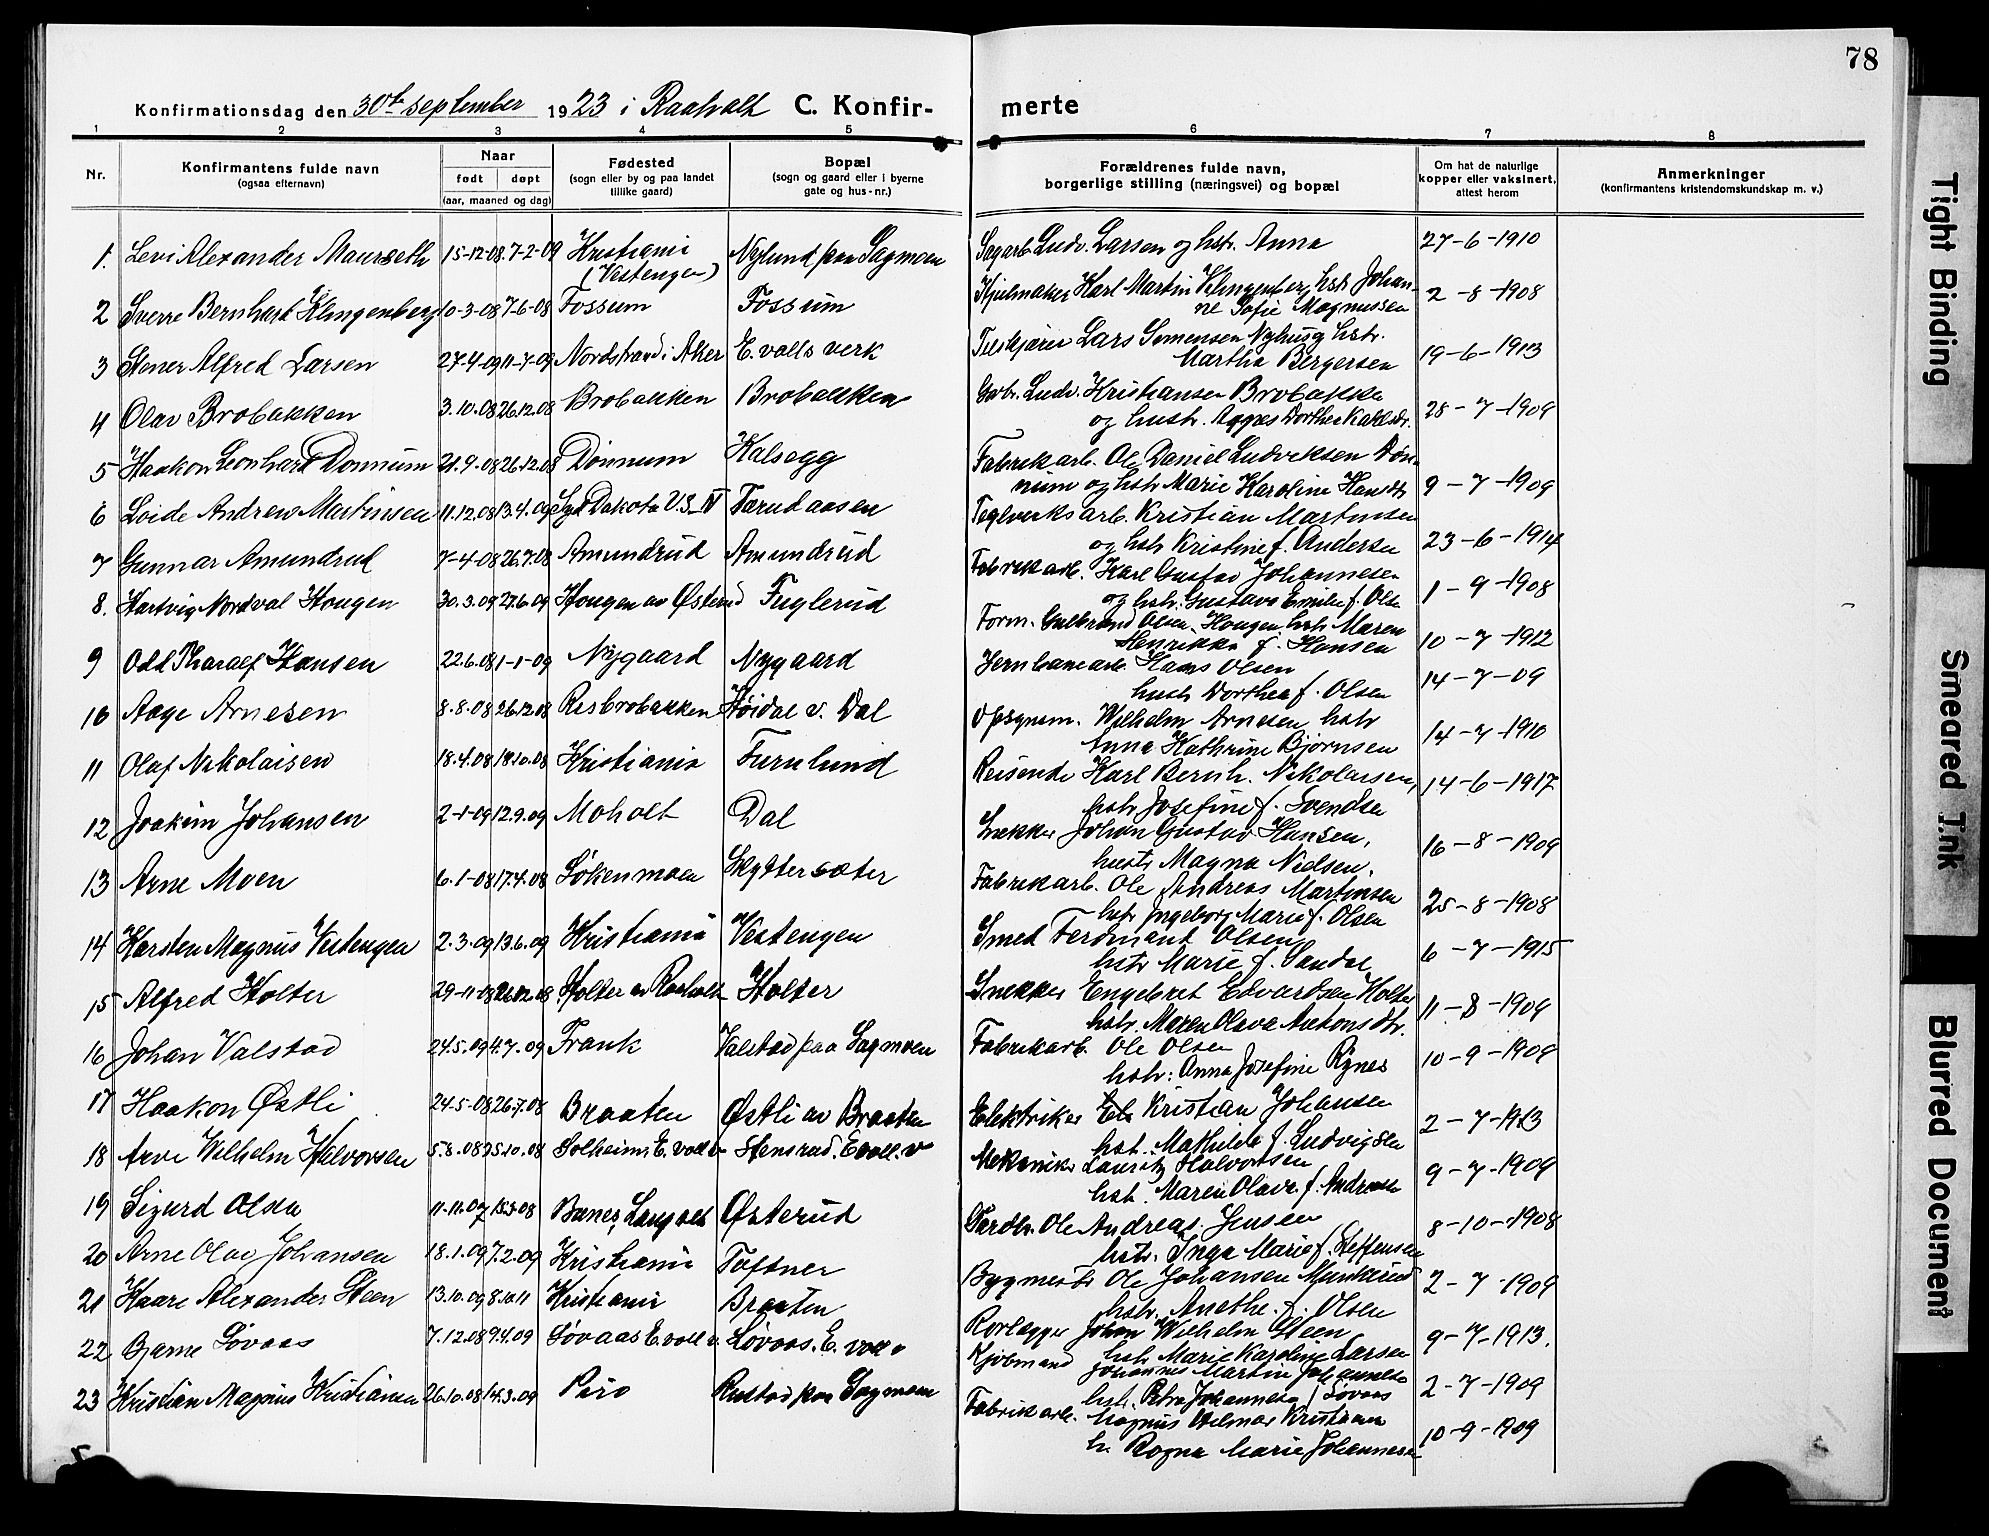 78
Konfirmationsdag den 30te september 1923 i Raaholt C. Konfir-
merte
1 2 3 4 5 6 7 8
Nr.
Konfirmantens fulde navn
(ogsaa efternavn)
Naar
født døpt
(aar, maaned og dag)
Fødested
(sogn eller by og paa landet
tillike gaard)
Bopæl
(sogn og gaard eller i byerne
gate og hus-nr.)
Forældrenes fulde navn,
borgerlige stilling (næringsvei) og bopæl
Om hat de naturlige
kopper eller vaksinert,
attest herom
Anmerkninger
(konfirmantens kristendomskundskap m. v.)
1. Levi Alexander Maurseth 15-12-08 7-2-09 Kristiania Nylund paa Sagmoen Sagarb. Ludv. Larsen og hstr. Anna 27-6-1910
(Vestengen)
2 Sverre Bernhart Klingenberg 10-3-08 7-6-08 Fossum Fossum Hjulmaker Karl Martin Klingenberg hstr Johan- 2-8-1908
ne Sofie Magnussen
3 Stener Alfred Larsen 27-4-09 11-7-09 Nordstrand i Aker E.volls verk Lars Simensen Nyhus og hstr. 19-6-1913
Martha Bergersen
4 Olav Brobakken 3.10.08 26.12.08 Brobakken Brobakken Ludv. Kristiansen Brobakke 28-7-1909
og hustr. Agnes Dorthea
5 Haakon Leonhard Dønnum 21.9.08 26.12.08 Dønnum Kalsegg Fabrikarb. Ole Daniel Ludviksen Døn-
num og hstr Marie Karoline Hansdtr 9-7-1909
6 Loide Andrew Martinsen 11.12.08 13.4.09 Syd Dakota U.S. Tærudaasen Teglverksarb. Kristian Martinsen
og hstr Kristine f. Andersen 23-6-1914
7 Gunnar Amundrud 7-4-08 26.7.08 Amundrud Amundrud Fabrikarb. Karl Gustav Johannesen
og hstr. Gustava Emilie f. Olsen 1-9-1908
8. Hartvig Nordval Haugen 30.3.09 27.6.09 Haugen av Østerud Fuglerud Form. Gulbrand Olsen Haugen hstr Maren
Henrikke f. Hansen 10-7-1912
9 Odd Tharalf Hansen 22.6.08 1-1-09 Nygaard Nygaard Jernbanearb. Hans Olsen
hustr Dorthea f. Olsen 14-7-09
10 Aage Arnesen 8.8.08 26.12.08 Risbrobakken Høidal v. Dal Opsynsm. Wilhelm Arnesen hstr
Anna Kathrine Bjørnsen 14-7-1910
11 Olaf Nikolaisen 18.4.08 18.10.08 Kristiania Furulund Reisende Karl Bernh. Nikolaisen,
hstr Josefine f. Svendsen 14-6-1917
12 Joakim Johansen 2-1-09 12.9.09 Moholt Dal Snekker Johan Gustav Hansen,
hustr Magna Nielsen. 16-8-1909
13 Arne Moen 6.1-08 17.4.08 Løkenmoen Skyttersæter Fabrikarb. Ole Andreas Martinsen
hstr Ingeborg Marie f. Olsen 25-8-1908
14 Karsten Magnus Vestengen 2.3.09 13.6.09 Kristiania Vestengen Smed Ferdinand Olsen
hstr Marie f. Sandal 6-7-1915
15 Alfred Holter 29-11-08 26.12.08 Holter av Raaholt Holter Snekker Engebret Edvardsen Holter
hstr. Maren Olava Antonsdtr. 11-8-1909
16 Johan Valstad 24.5.09 4.7.09 Frank Valstad paa Sagmoen Fabrikarb. Ole Olsen
hstr: Anna Josefine Rynes 10-9-1909
17 Haakon Østli 24.5-08 26.7.08 Braaten Østli av Braaten Elektriker Kristian Johansen
hst. Mathilde f. Ludvigsen 2-7-1913
18 Arve Wilhelm Halvorsen 5.8.08 25.10.08 Solheim E.voll v Stensrud. E.voll.v Mekaniker Lauritz Halvorsen
hst. Maren Olave f. Andreasen 9-7-1909
19 Sigurd Olsen 11-11-07 15.3.08 Bænes, Langset Østerud Gardbr. Ole Andreas Jensen
hstr. Inga Marie f. Steffensen 8-10-1908
20 Arne Olav Johansen 18.1.09 7.2.09 Kristiania Toftner Bygmestr Ole Johansen Munkerud
hstr. Anethe f. Olsen 2-7-1909
21 Kaare Alexander Steen 13.10.09 8.10.11 Kristiania Braaten Rørlægger Johan Wilhelm Steen
hstr Marie Karoline Larsen 9-7-1913.
22 Bjarne Løvaas 7.12.08 9.4.09 Løvaas E.voll v. Løvaas. E.voll v Kjøbmand Johannes Martin Johannesen
hstr. Petra Johannesen f Løvaas 2-7-1909
23 Kristian Magnus Kristiansen 26.10.08 14.3.09 Piro Rustad paa Sagmoen Fabrikarb. Magnus Hilmar Kristiansen
h. Ragna Marie Johannesen 10-9-1909
Tight Binding
Smeared Ink
Blurred Document